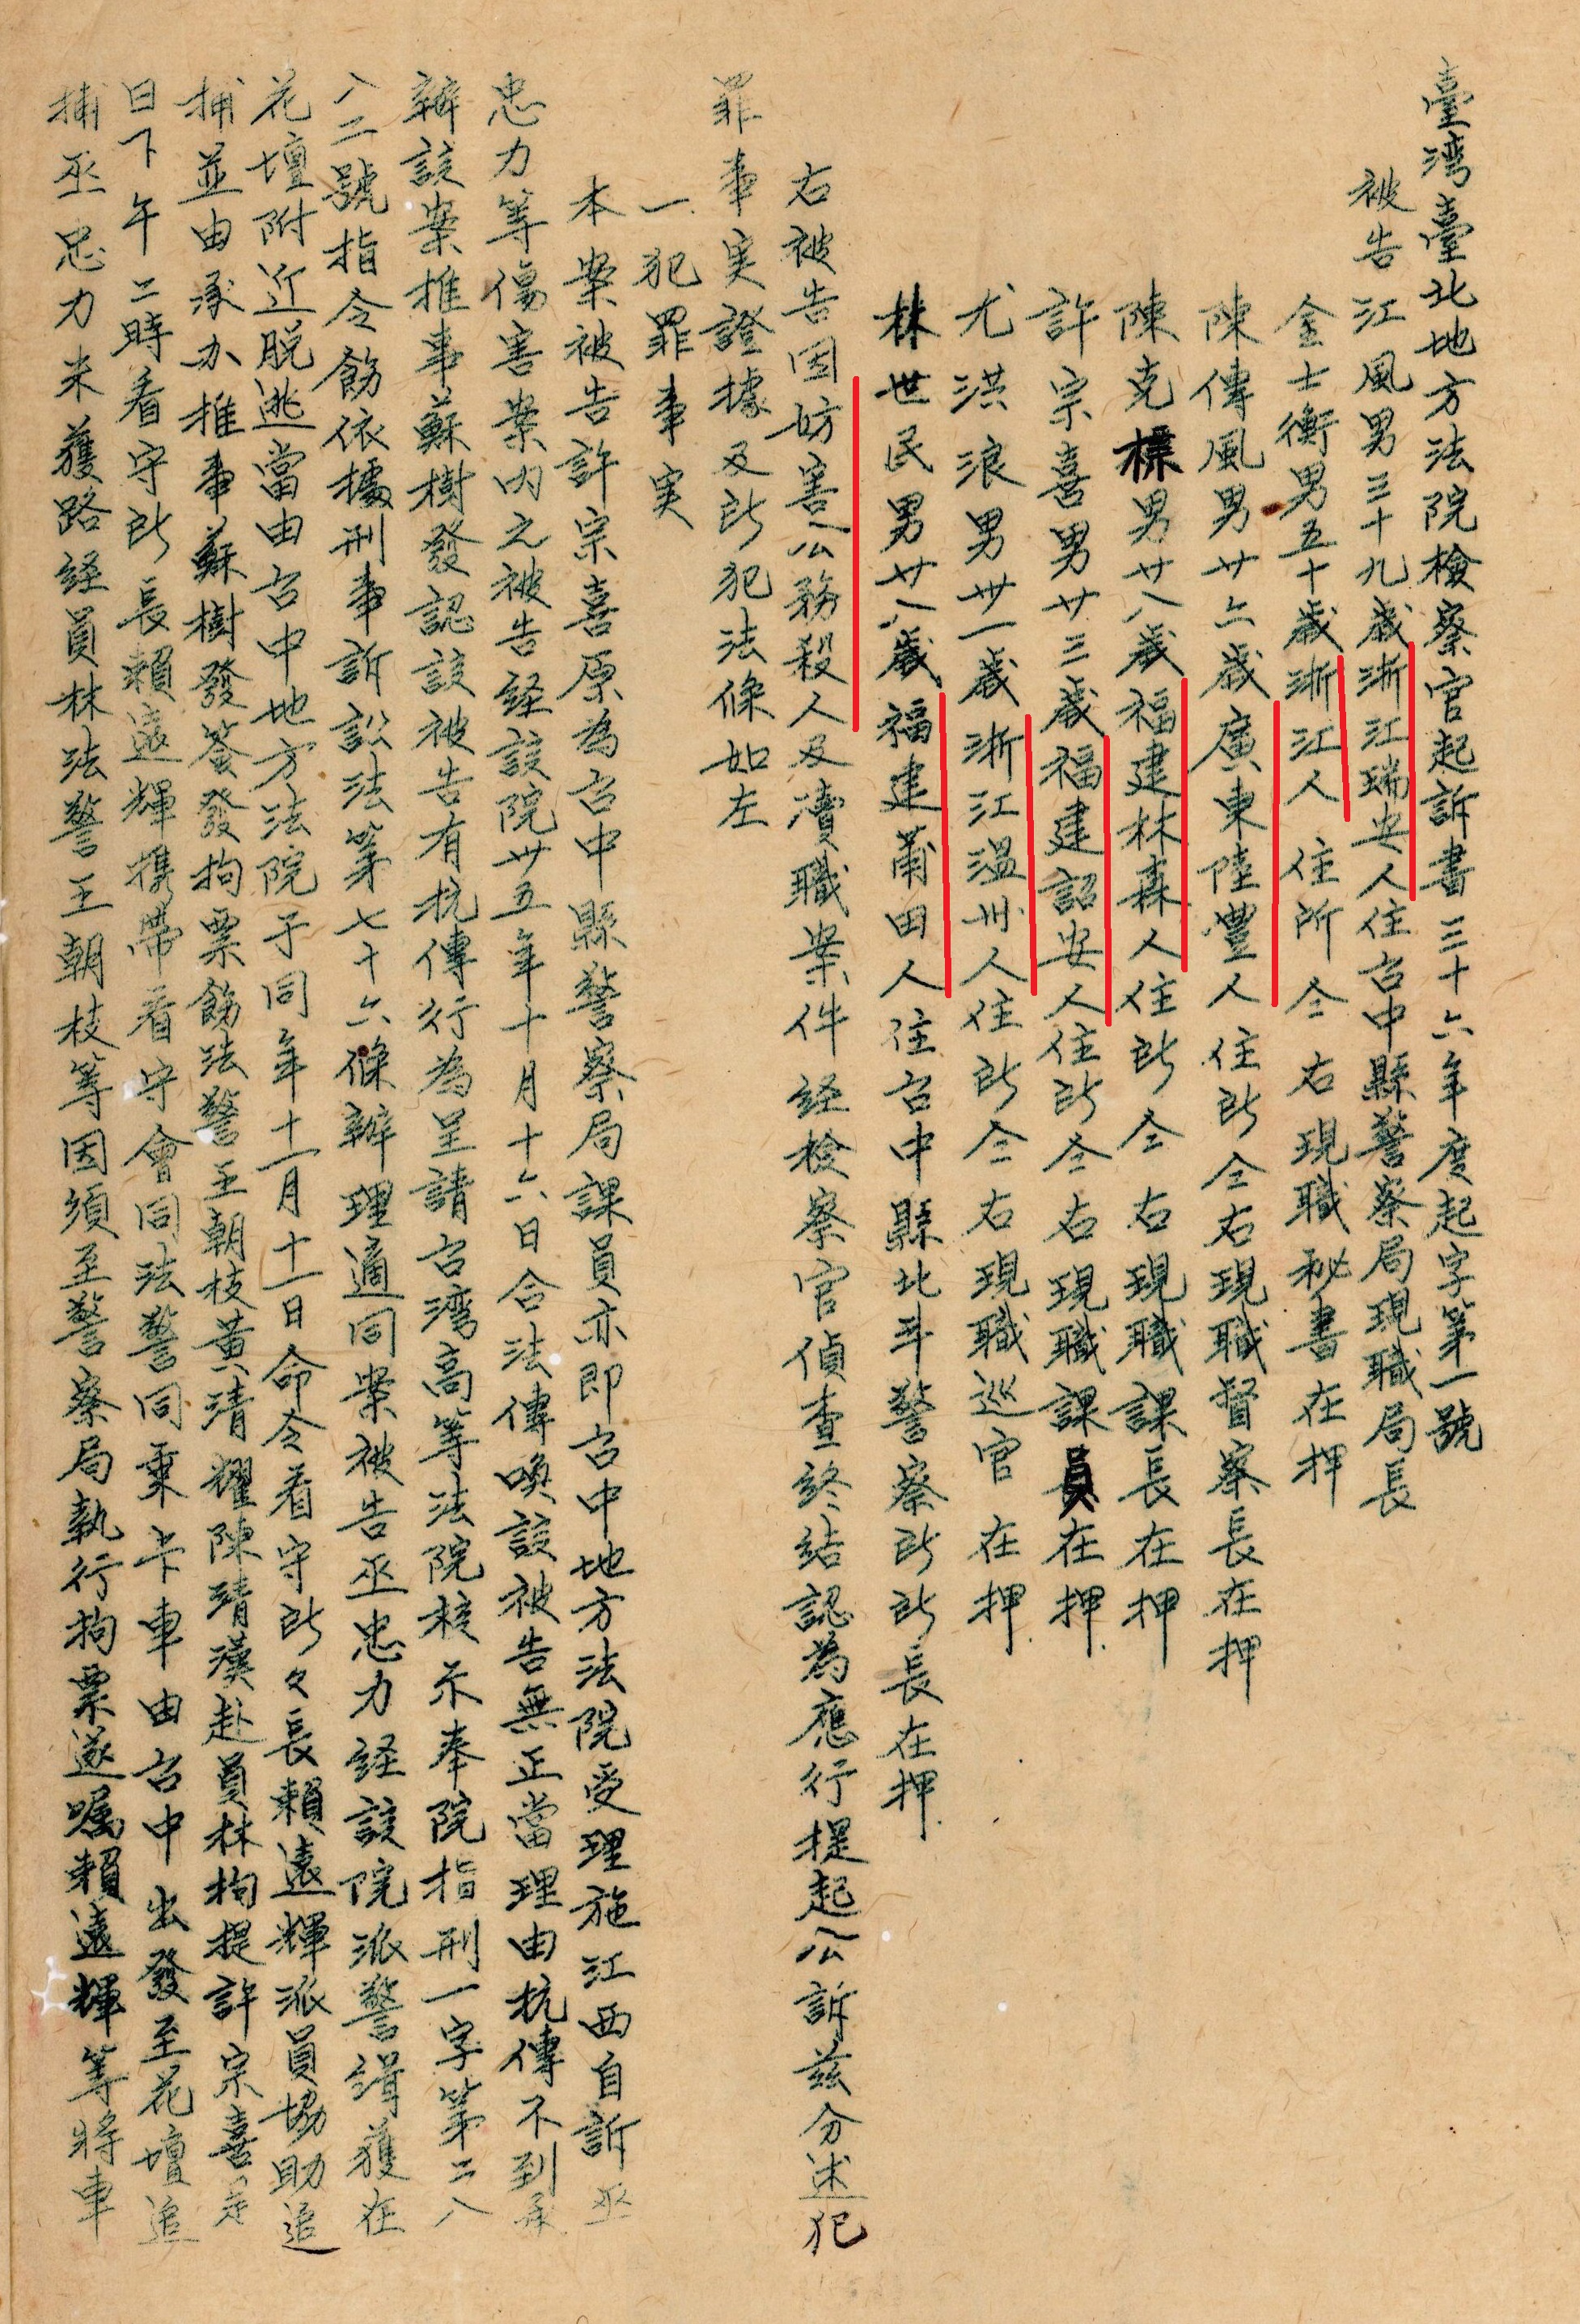 臺湾臺北地方法院檢察官起訴書三十六年度起字第一號
被告江風男三十九歲浙江瑞安人住台中縣警察局現職局長
金士衡男五十歲浙江人住所仝右現職秘書在押
陳傳風男廿六歲廣東陸豐人住所仝右現職督察長在押
陳克標男廿八歲福建林森人住所仝右現職課長在押
許宗喜男廿三歲福建詔安人住所仝右現職課員在押
尤洪浪男卅一歲浙江溫州人住所仝右現職巡官在押
林世民男廿八歲福建莆田人住台中縣北斗警察所所長在押
右被告因妨害公務殺人及瀆職案件経檢察官偵查終結認為應行提起公訴茲分述犯
罪事実證據及所犯法條如左
一、犯罪事実
本案被告許宗喜原為台中縣警察局課員亦即台中地方法院受理施江西自訴巫
忠力等傷害案內之被告経該院卅五年十月十六日合法傳喚該被告無正當理由抗傳不到承
辦該案推事蘇樹發認該被告有抗傳行為呈請台湾高等法院核示奉院指刑一字第二八
八二號指令飭依據刑事訴訟法第七十六條辦理適同案被告巫忠力経該院派警緝獲在
花壇附近脱逃當由台中地方法院于同年十一月十一日命令看守所々長賴遠輝派員協助追
捕並由承办推事蘇樹發簽發拘票飭法警王朝枝黄清耀陳清漢赴員林拘提許宗喜是
日下午二時看守所長賴遠輝携帶看守會同法警同乘卡車由台中出發至花壇追
捕巫忠力未獲路経員林法警王朝枝等因須至警察局執行拘票遂嘱賴遠輝等將車